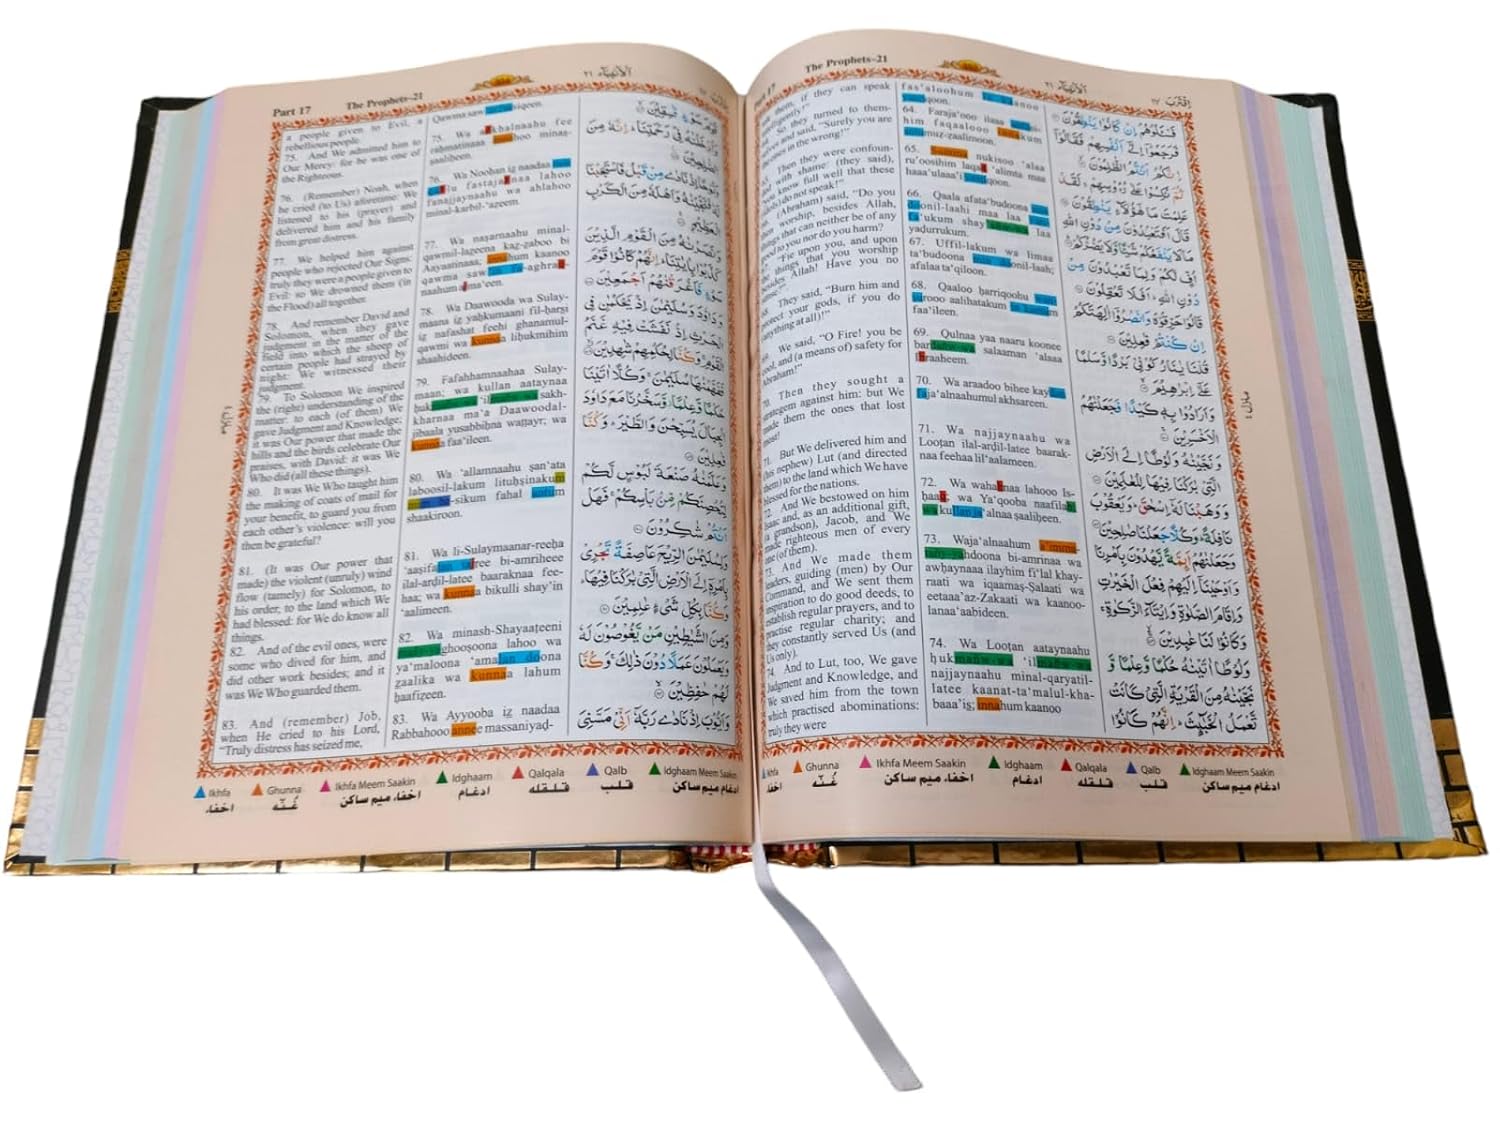 The Prophets–21
الأنبياء ٢١
اقترب ١٧
them, if they can speak
intelligently!"
So they turned to them-
selves and said, "Surely you are
ones in the wrong!"
Then they were confoun-
with shame: (they said),
know full well that these
do not speak!"
(Abraham) said, "Do you
worship, besides Allah,
things that can neither be of any
good to you nor do you harm?
"Fie upon you, and upon
the things that you worship
besides Allah! Have you no
They said, "Burn him and
protect your gods, if you do
(anything at all)!"
We said, "O Fire! you be
cool, and (a means of) safety for
Abraham!"
70. Then they sought a
strategem against him: but We
made them the ones that lost
most!
71. But We delivered him and
(his nephew) Lut (and directed
them) to the land which We have
blessed for the nations.
72. And We bestowed on him
Isaac and, as an additional gift,
(a grandson), Jacob, and We
made righteous men of every
one (of them).
73. And We made them
leaders, guiding (men) by Our
Command, and We sent them
inspiration to do good deeds, to
establish regular prayers, and to
practise regular charity; and
they constantly served Us (and
Us only).
74. And to Lut, too, We gave
Judgment and Knowledge, and
We saved him from the town
which practised abominations:
truly they were
fas'aloohum
64. Faraja'ooo ilaaa
him faqaalooo innakum
antumuz-zaalimoon.
65. Summa nukisoo 'alaa
ru'oosihim laqad 'alimta maa
haaa'ulaaa'i yantiqoon.
66. Qaala afata'budoona min
doonil-laahi maa laa
yadurrukum.
67. Uffil-lakum wa limaa
ta'budoona min doonil-laah;
afalaa ta'qiloon.
68. Qaaloo ḥarriqoohu wan-
ṣurooo aalihatakum in kuntum
faa'ileen.
69. Qulnaa yaa naaru koonee
bardañw-wa salaaman 'alaaa
Ibraaheem.
70. Wa araadoo bihee kaydan
faja'alnaahumul akhsareen.
71. Wa najjaynaahu wa
Looṭan ilal-arḍil-latee baarak-
naa feehaa lil'aalameen.
72. Wa wahabnaa lahooo Is-
ḥaaq; wa Ya'qooba naafilah;
wa kullan ja'alnaa ṣaaliḥeen.
73. Waja'alnaahum a'imma-
tañy-yahdoona bi-amrinaa wa
awḥaynaaa ilayhim fi'lal khay-
raati wa iqaamaṣ-Ṣalaati wa
eetaaa'az-Zakaati wa kaanoo-
lanaa 'aabideen.
74. Wa Looṭan aataynaahu
ḥukmañw-wa 'ilmañw-wa
najjaynaahu minal-qaryatil-
latee kaanat-ta'malul-kha-
baaa'is; innahum kaanoo
فَسْـَٔلُوهُمْ إِن كَانُوا يَنطِقُونَ
فَرَجَعُوٓا إِلَىٰٓ أَنفُسِهِمْ فَقَالُوٓا
إِنَّكُمْ أَنتُمُ الظَّٰلِمُونَ
ثُمَّ نُكِسُوا عَلَىٰ رُءُوسِهِمْ لَقَدْ
عَلِمْتَ مَا هَٰٓؤُلَآءِ يَنطِقُونَ
قَالَ أَفَتَعْبُدُونَ مِن دُونِ اللَّهِ
مَا لَا يَنفَعُكُمْ شَيْـًٔا وَلَا يَضُرُّكُمْ
أُفٍّ لَّكُمْ وَلِمَا تَعْبُدُونَ مِن
دُونِ اللَّهِ أَفَلَا تَعْقِلُونَ
قَالُوا حَرِّقُوهُ وَانصُرُوٓا آلِهَتَكُمْ
إِن كُنتُمْ فَٰعِلِينَ
قُلْنَا يَٰنَارُ كُونِي بَرْدًا وَسَلَٰمًا
عَلَىٰٓ إِبْرَٰهِيمَ
وَأَرَادُوا بِهِ كَيْدًا فَجَعَلْنَٰهُمُ
الْأَخْسَرِينَ
وَنَجَّيْنَٰهُ وَلُوطًا إِلَى الْأَرْضِ
الَّتِي بَٰرَكْنَا فِيهَا لِلْعَٰلَمِينَ
وَوَهَبْنَا لَهُٓ إِسْحَٰقَ وَيَعْقُوبَ
نَافِلَةً وَكُلًّا جَعَلْنَا صَٰلِحِينَ
وَجَعَلْنَٰهُمْ أَئِمَّةً يَهْدُونَ بِأَمْرِنَا
وَأَوْحَيْنَآ إِلَيْهِمْ فِعْلَ الْخَيْرَٰتِ
وَإِقَامَ الصَّلَوٰةِ وَإِيتَآءَ الزَّكَوٰةِ
وَكَانُوا لَنَا عَٰبِدِينَ
وَلُوطًا آتَيْنَٰهُ حُكْمًا وَعِلْمًا وَ
نَجَّيْنَٰهُ مِنَ الْقَرْيَةِ الَّتِي كَانَت
تَّعْمَلُ الْخَبَٰٓئِثَ إِنَّهُمْ كَانُوا
منزل ٤
Ikhfa Ghunna Ikhfa Meem Saakin Idghaam Qalqala Qalb Idghaam Meem Saakin
اخفاء غُنّه اخفاء ميم ساكن ادغام قلقله قلب ادغام ميم ساكن
Part 17
The Prophets–21
الأنبياء ٢١
a people given to Evil, a
rebellious people.
75. And We admitted him to
Our Mercy: for he was one of
the Righteous.
76. (Remember) Noah, when
he cried (to Us) aforetime: We
listened to his (prayer) and
delivered him and his family
from great distress.
77. We helped him against
people who rejected Our Signs:
truly they were a people given to
Evil: so We drowned them (in
the Flood) all together.
78. And remember David and
Solomon, when they gave
judgment in the matter of the
field into which the sheep of
certain people had strayed by
night: We witnessed their
judgment.
79. To Solomon We inspired
the (right) understanding of the
matter: to each (of them) We
gave Judgment and Knowledge;
it was Our power that made the
hills and the birds celebrate Our
praises, with David: it was We
Who did (all these things).
80. It was We Who taught him
the making of coats of mail for
your benefit, to guard you from
each other's violence: will you
then be grateful?
81. (It was Our power that
made) the violent (unruly) wind
flow (tamely) for Solomon, to
his order, to the land which We
had blessed: for We do know all
things.
82. And of the evil ones, were
some who dived for him, and
did other work besides; and it
was We Who guarded them.
83. And (remember) Job,
when He cried to his Lord,
"Truly distress has seized me,
Qawma
75. Wa adkhalnaahu fee
raḥmatinaaa innahoo minaṣ-
ṣaaliḥeen.
76. Wa Nooḥan iẓ naadaa min
qablu fastajabnaa lahoo
fanajjaynaahu wa ahlahoo
minal-karbil-'aẓeem.
77. Wa naṣarnaahu minal-
qawmil-lazeena kaẓ-zaboo bi
Aayaatinaaa; innahum kaanoo
qawma
naahum ajma'een.
78. Wa Daawooda wa Sulay-
maana iẓ yaḥkumaani fil-ḥarṡi
iẓ nafashat feehi ghanamul-
qawmi wa kunnaa liḥukmihim
shaahideen.
79. Fafahhamnaahaa Sulay-
maan; wa kullan aataynaa
ḥukmañw-wa 'ilmañw-wa sakh-
kharnaa ma'a Daawoodal-
jibaala yusabbiḥna waṭṭayr; wa
kunnaa faa'ileen.
80. Wa 'allamnaahu ṣan'ata
laboosil-lakum lituḥṣinakum
-sikum fahal antum
shaakiroon.
81. Wa li-Sulaymaanar-reeḥa
'aaṣifatan tajree bi-amriheee
ilal-arḍil-latee baaraknaa fee-
haa; wa kunnaa bikulli shay'in
'aalimeen.
82. Wa minash-Shayaaṭeeni
mañy-yaghooṣoona lahoo wa
ya'maloona 'amalan doona
ẓaalika wa kunnaa lahum
ḥaafiẓeen.
83. Wa Ayyooba iẓ naadaa
Rabbahooo annee massaniyaḍ-
قَوْمَ سَوْءٍ فَٰسِقِينَ
وَأَدْخَلْنَٰهُ فِي رَحْمَتِنَآ إِنَّهُ مِنَ
الصَّٰلِحِينَ
وَنُوحًا إِذْ نَادَىٰ مِن قَبْلُ فَاسْتَجَبْنَا
لَهُ فَنَجَّيْنَٰهُ وَأَهْلَهُ مِنَ الْكَرْبِ
الْعَظِيمِ
وَنَصَرْنَٰهُ مِنَ الْقَوْمِ الَّذِينَ
كَذَّبُوا بِآيَٰتِنَآ إِنَّهُمْ كَانُوا قَوْمَ
سَوْءٍ فَأَغْرَقْنَٰهُمْ أَجْمَعِينَ
وَدَاوُدَ وَسُلَيْمَٰنَ إِذْ يَحْكُمَانِ فِي
الْحَرْثِ إِذْ نَفَشَتْ فِيهِ غَنَمُ
الْقَوْمِ وَكُنَّا لِحُكْمِهِمْ شَٰهِدِينَ
فَفَهَّمْنَٰهَا سُلَيْمَٰنَ وَكُلًّا آتَيْنَا
حُكْمًا وَعِلْمًا وَسَخَّرْنَا مَعَ دَاوُدَ
الْجِبَالَ يُسَبِّحْنَ وَالطَّيْرَ وَكُنَّا
فَٰعِلِينَ
وَعَلَّمْنَٰهُ صَنْعَةَ لَبُوسٍ لَّكُمْ
لِتُحْصِنَكُم مِّن بَأْسِكُمْ فَهَلْ
أَنتُمْ شَٰكِرُونَ
وَلِسُلَيْمَٰنَ الرِّيحَ عَاصِفَةً تَجْرِي
بِأَمْرِهِٓ إِلَى الْأَرْضِ الَّتِي بَٰرَكْنَا فِيهَا
وَكُنَّا بِكُلِّ شَيْءٍ عَٰلِمِينَ
وَمِنَ الشَّيَٰطِينِ مَن يَغُوصُونَ لَهُ
وَيَعْمَلُونَ عَمَلًا دُونَ ذَٰلِكَ وَكُنَّا
لَهُمْ حَٰفِظِينَ
وَأَيُّوبَ إِذْ نَادَىٰ رَبَّهُٓ أَنِّي مَسَّنِيَ
منزل ٤
Ikhfa Ghunna Ikhfa Meem Saakin Idghaam Qalqala Qalb Idghaam Meem Saakin
اخفاء غُنّه اخفاء ميم ساكن ادغام قلقله قلب ادغام ميم ساكن